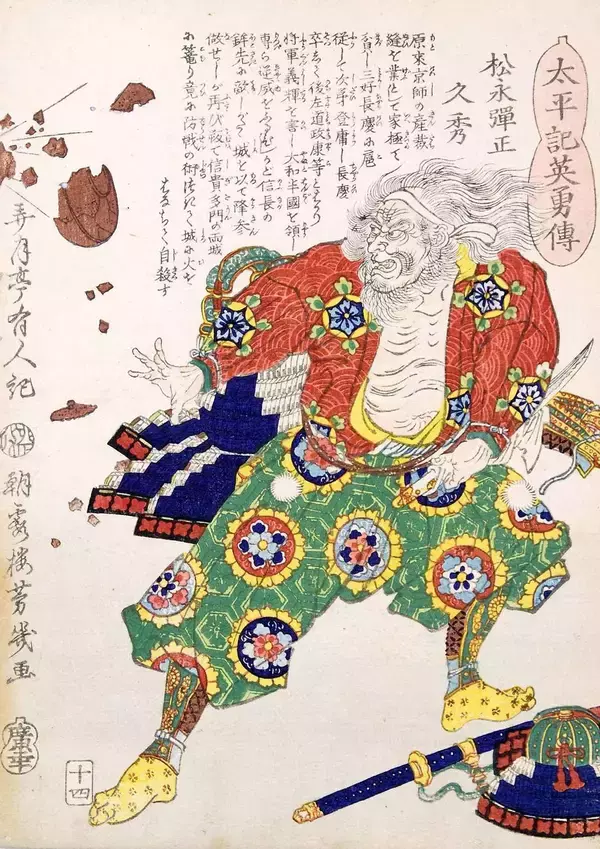 太平記英勇傳
松永彈正
久秀
原來京師の産裁
縫を業として家極て
貧し三好長慶に扈
從して次第登庸し長慶
卒して後左道政康等とはかり
将軍義輝を害し大和半國を領し
専ら逆威をふるふが信長の
鉾先に敵しがたく城をいで降参
做せしが再び叛て信貴多門の両城
に篭り竟に防戦の術つきて城に火を
はなちて自殺す
弄月亭有人記
朝霞楼芳幾画
廣幸
十四